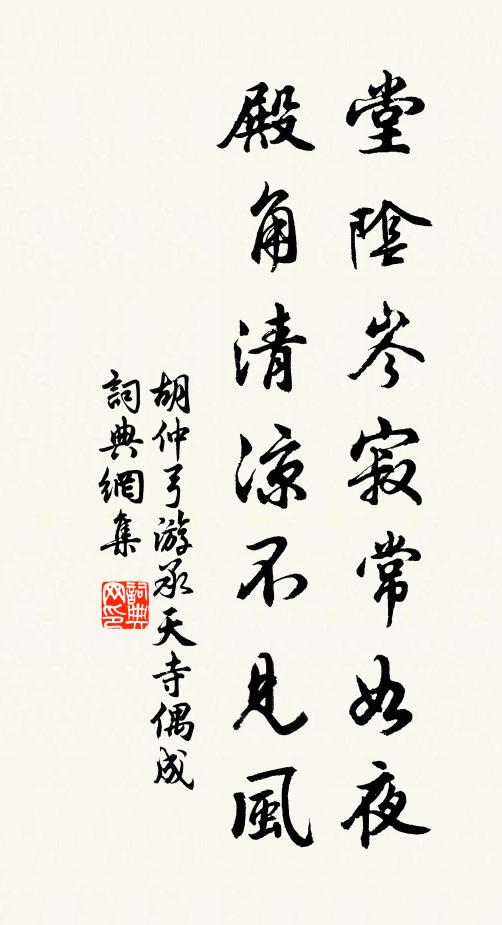 堂陰岑寂常如夜
殿角清涼不見風
胡仲弓游承天寺偶成
詞典網集
詞典网印